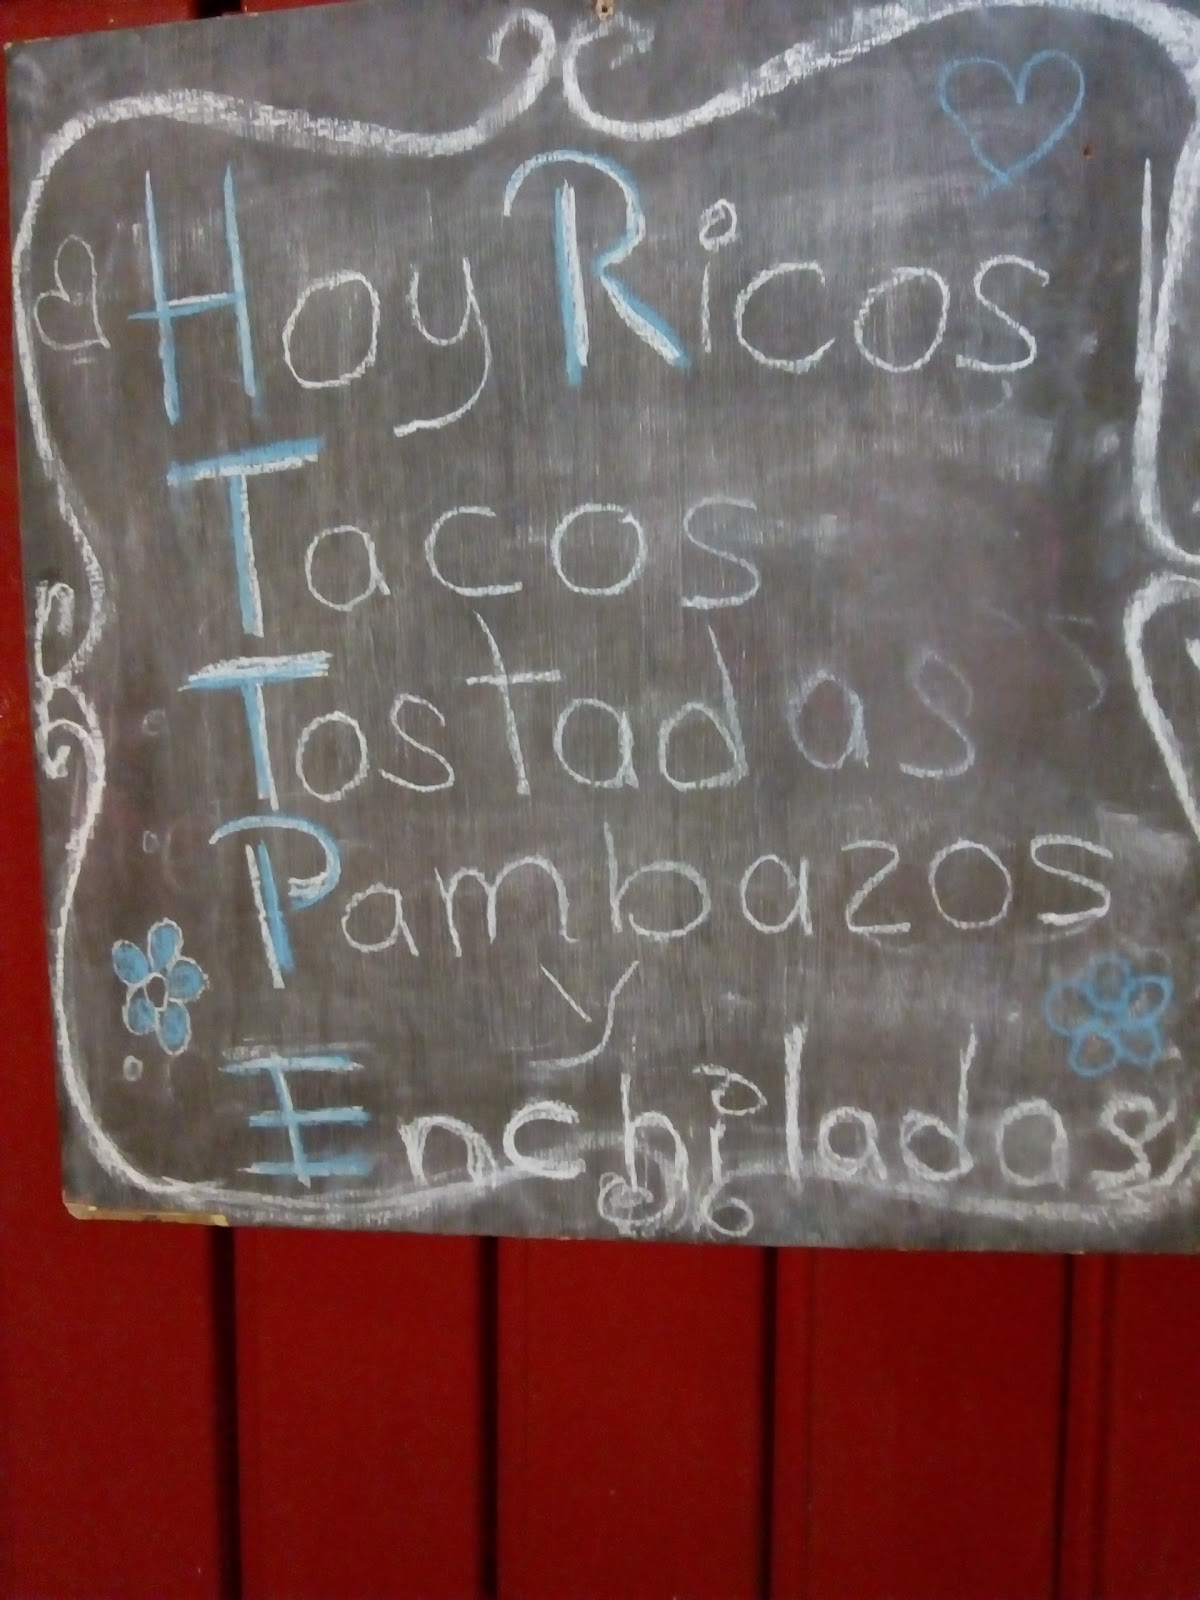 Hoy Ricos
Tacos
Tostadas
Pambazos
y
Enchiladas